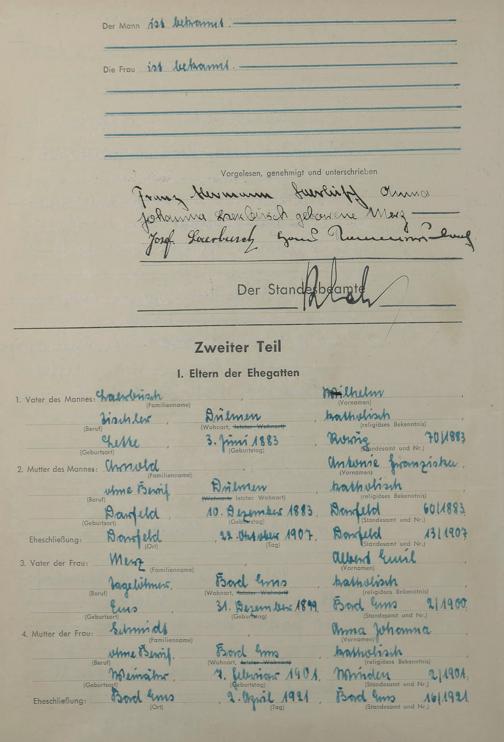 Der Mann ist bekannt.
Die Frau ist bekannt.
Vorgelesen, genehmigt und unterschrieben
Franz Hermann Laerbusch Anna
Johanna Laerbusch geborene Merz
Josef Laerbusch
Der Standesbeamte
Zweiter Teil
I. Eltern der Ehegatten
1. Vater des Mannes: Laerbusch Wilhelm
(Familienname) (Vornamen)
Tischler Dülmen katholisch
(Beruf) (Wohnort, letzter Wohnort) (religiöses Bekenntnis)
Lette 3. Juni 1883 70/1883
(Geburtsort) (Geburtstag) (Standesamt und Nr.)
2. Mutter des Mannes: Arnold Antonie Franziska
(Familienname) (Vornamen)
ohne Beruf Dülmen katholisch
(Beruf) (Wohnort, letzter Wohnort) (religiöses Bekenntnis)
Darfeld 10. Dezember 1883. Darfeld 60/1883
(Geburtsort) (Geburtstag) (Standesamt und Nr.)
Eheschließung: Darfeld 22. Oktober 1907. Darfeld 13/1907
(Ort) (Tag) (Standesamt und Nr.)
3. Vater der Frau: Merz Albert Emil
(Familienname) (Vornamen)
Tagelöhner Bad Ems katholisch
(Beruf) (Wohnort, letzter Wohnort) (religiöses Bekenntnis)
Ems 31. Dezember 1899 Bad Ems 2/1900
(Geburtsort) (Geburtstag) (Standesamt und Nr.)
4. Mutter der Frau: Schmidt Anna Johanna
(Familienname) (Vornamen)
ohne Beruf Bad Ems katholisch
(Beruf) (Wohnort, letzter Wohnort) (religiöses Bekenntnis)
Weinähr 7. Februar 1901. Winden 2/1901
(Geburtsort) (Geburtstag) (Standesamt und Nr.)
Eheschließung: Bad Ems 2. April 1921 Bad Ems 16/1921
(Ort) (Tag) (Standesamt und Nr.)